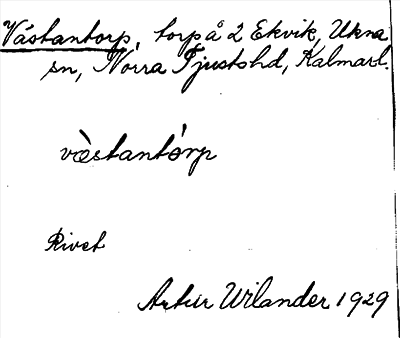 Västantorp, torp å 2 Ekvik, Ukna
sn, Norra Tjusts hd, Kalmar l.
vàstantórp
Rivet
Artur Wilander 1929